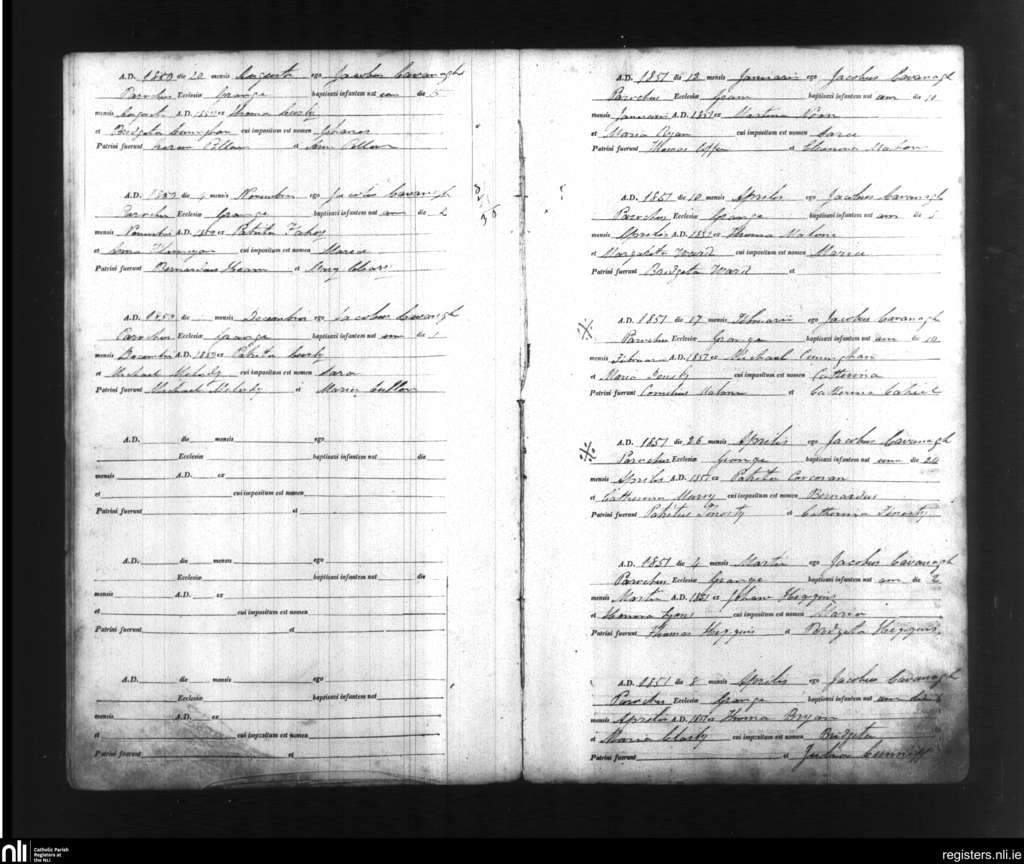 A.D. 1850 die 20 mensis Augusti ego Jacobus Cavanagh
Parochus Ecclesiæ Grange baptizavi infantem nat die 5
mensis Augusti A.D. 185 ex Thoma
et Bridgeta cui impositum est nomen
Patrini fuerunt et
A.D. 1850 die 4 mensis Novembris ego Jacobus Cavanagh
Parochus Ecclesiæ Grange baptizavi infantem nat am die 2
mensis Novembris A.D. 1850 ex Patritio Fahey
et cui impositum est nomen Maria
Patrini fuerunt Bernardus et Mary
A.D. 1850 die mensis Decembris ego Jacobus Cavanagh
Parochus Ecclesiæ Grange baptizavi infantem nat am die 1
mensis Decembris A.D. 1850 ex Patritio
et Michael Melody cui impositum est nomen Sara
Patrini fuerunt Michael Melody et Maria
A.D. die mensis ego
Ecclesiæ baptizavi infantem nat die
mensis A.D. ex
et cui impositum est nomen
Patrini fuerunt et
A.D. die mensis ego
Ecclesiæ baptizavi infantem nat die
mensis A.D. ex
et cui impositum est nomen
Patrini fuerunt et
A.D. die mensis ego
Ecclesiæ baptizavi infantem nat
mensis A.D. ex
et cui impositum est nomen
Patrini fuerunt et
A.D. 1851 die 12 mensis Januarii ego Jacobus Cavanagh
Parochus Ecclesiæ baptizavi infantem nat am die 10
mensis Januarii A.D. 1851 ex Martino
et Maria Ryan cui impositum est nomen Sara
Patrini fuerunt Thomas et Eleanora Mahon
A.D. 1851 die 10 mensis Aprilis ego Jacobus Cavanagh
Parochus Ecclesiæ Grange baptizavi infantem nat am die
mensis Aprilis A.D. 185 ex Thoma Malone
et Margarita Ward cui impositum est nomen Maria
Patrini fuerunt Bridgeta Ward et
A.D. 1851 die 17 mensis Februarii ego Jacobus Cavanagh
Parochus Ecclesiæ Grange baptizavi infantem nat am die 10
mensis A.D. 1851 ex Michael
et Maria cui impositum est nomen Catherina
Patrini fuerunt Cornelius Malone et Catherina Cahill
A.D. 1851 die 26 mensis Aprilis ego Jacobus Cavanagh
Parochus Ecclesiæ Grange baptizavi infantem nat die 24
mensis Aprilis A.D. 185 ex Patritio Corcoran
et Catherina cui impositum est nomen Bernardus
Patrini fuerunt et Catherina
A.D. 1851 die 4 mensis Martii ego Jacobus Cavanagh
Parochus Ecclesiæ Grange baptizavi infantem nat am die 2
mensis Martii A.D. 1851 ex Higgins
et Honora Lyons cui impositum est nomen Maria
Patrini fuerunt Thomas Higgins et Bridgeta Higgins
A.D. 1851 die 8 mensis Aprilis ego Jacobus Cavanagh
Parochus Ecclesiæ Grange baptizavi infantem nat am die
mensis Aprilis A.D. 1851 ex Thoma Bryan
et Maria cui impositum est nomen Bridgeta
Patrini fuerunt et Julia Cunniff
nli Catholic Parish
Registers at
the NLI
registers.nli.ie